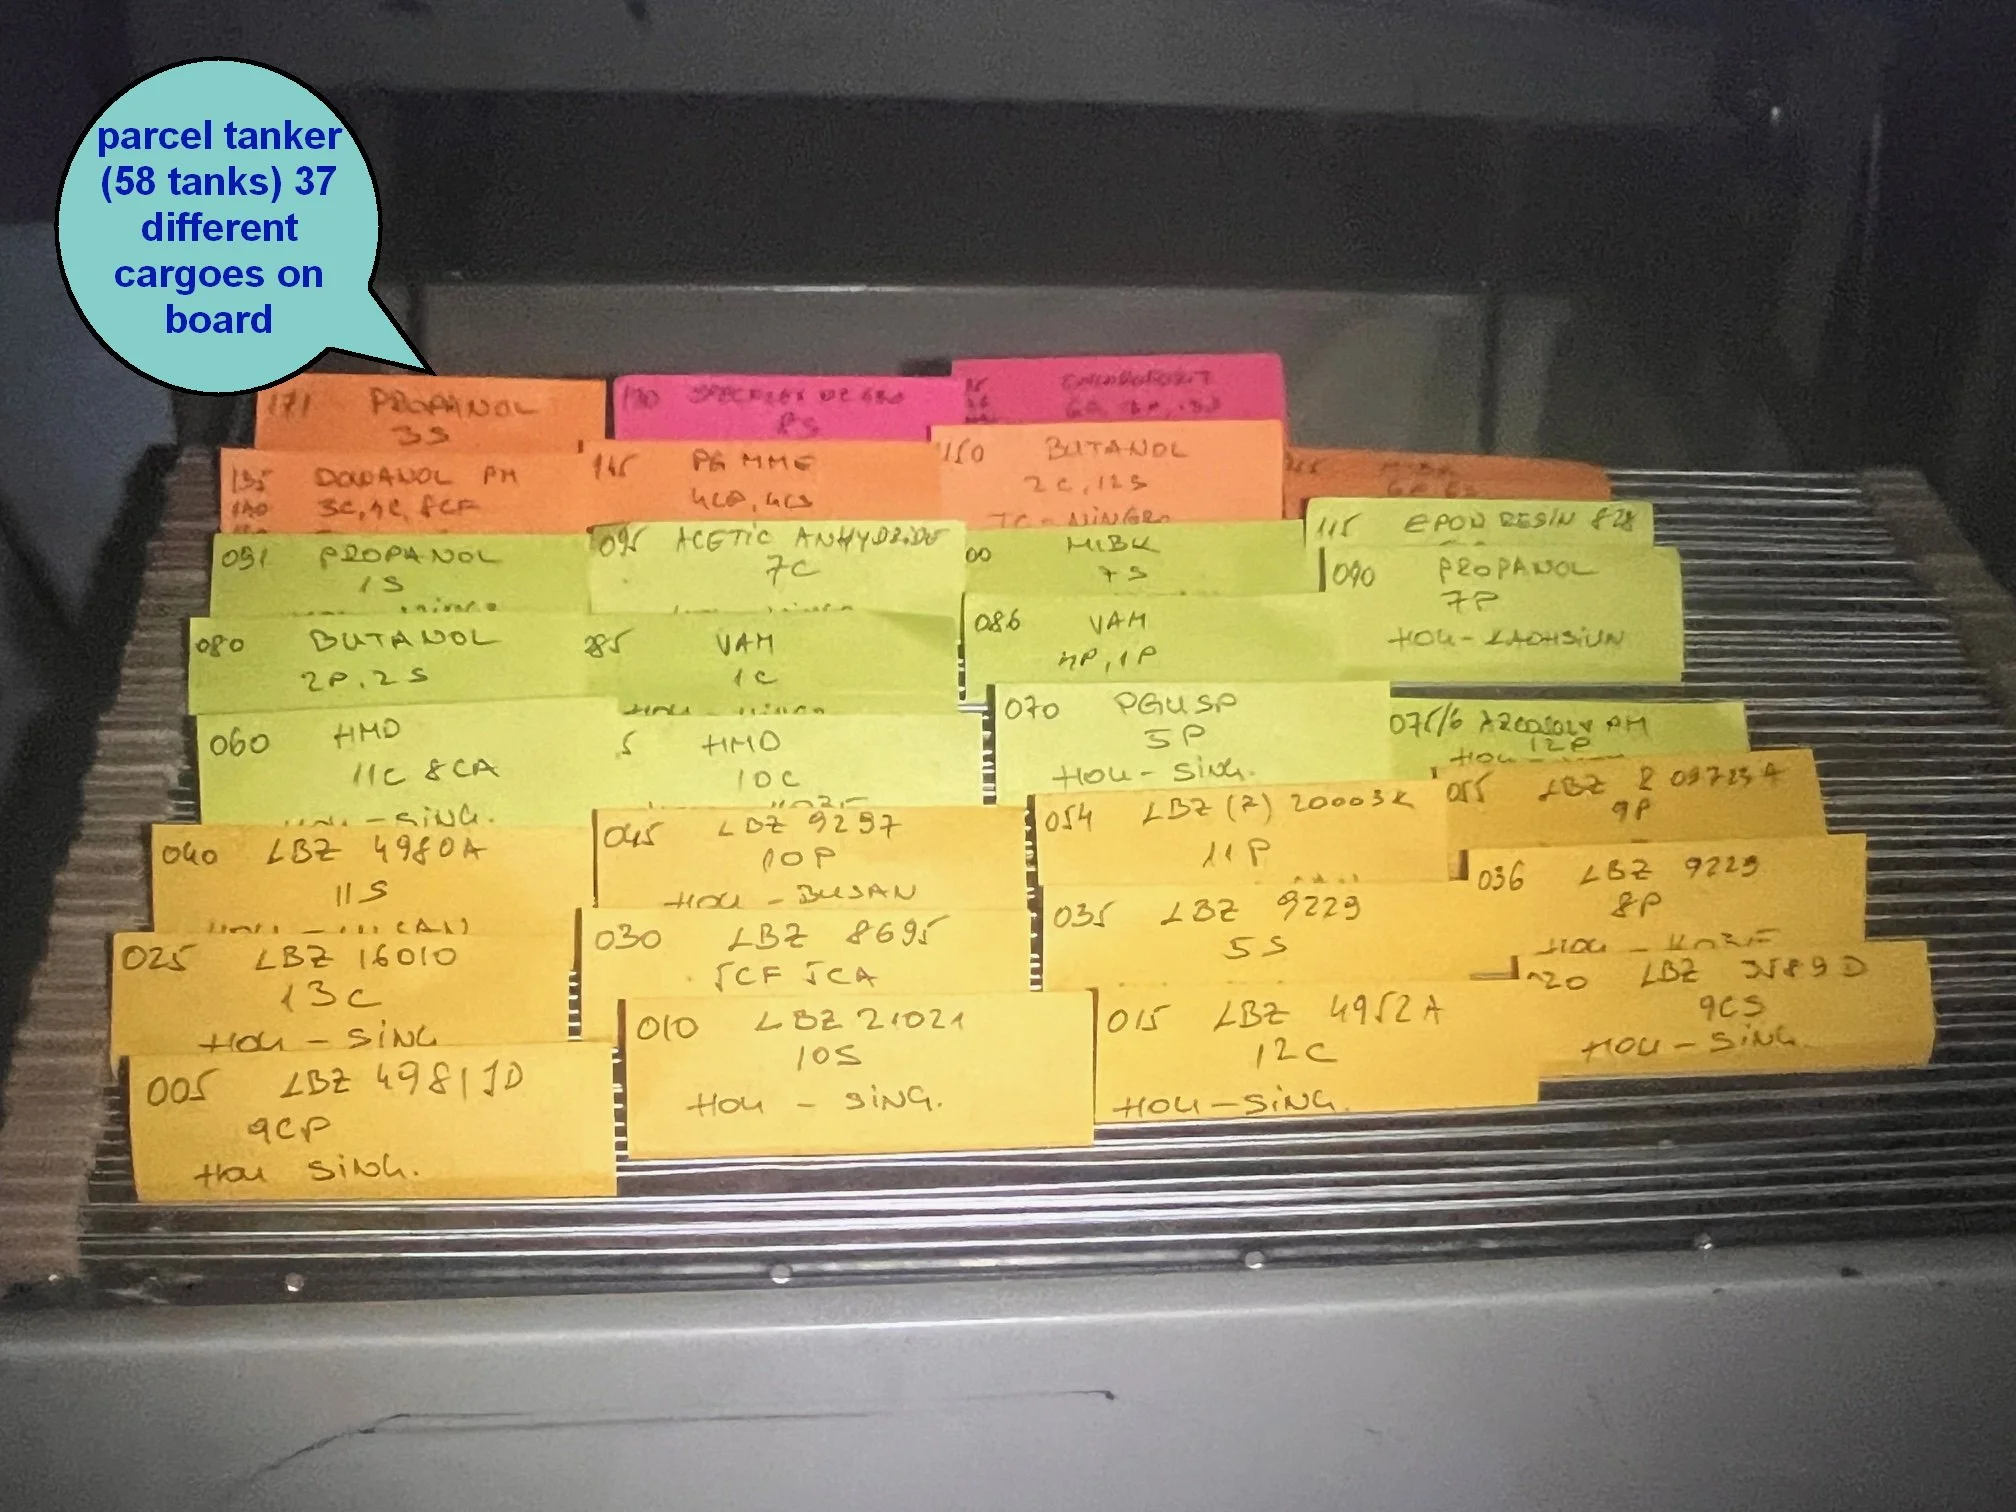 parcel tanker
(58 tanks) 37
different
cargoes on
board
171 PROPANOL
3S
130 SPECFLEX
8S
135 DOWANOL PM
140 3C, 4C, 8CF
145 PG MME
4CP, 4CS
150 BUTANOL
2C, 12S
091 PROPANOL
1S
095 ACETIC ANHYDRIDE
7C
00 MIBK
7S
115 EPON RESIN 828
090 PROPANOL
7P
HOU - KAOHSIUN
080 BUTANOL
2P, 2S
085 VAM
1C
HOU - NINGB
086 VAM
4P, 1P
060 HMD
11C 8CA
HOU - SING.
5 HMD
10C
070 PGUSP
5P
HOU - SING.
075/6 ARCOSOLV PM
12P
HOU -
040 LBZ 4980A
11S
045 LBZ 9297
10P
HOU - BUSAN
054 LBZ (Z) 20003K
11P
055 LBZ
9P
036 LBZ 9229
8P
HOU - KOBE
025 LBZ 16010
13C
HOU - SING
030 LBZ 8695
5CF 5CA
035 LBZ 9229
5S
020 LBZ 3589D
9CS
HOU - SING.
005 LBZ 4981JD
9CP
HOU SING.
010 LBZ 21021
10S
HOU - SING.
015 LBZ 4952A
12C
HOU - SING.